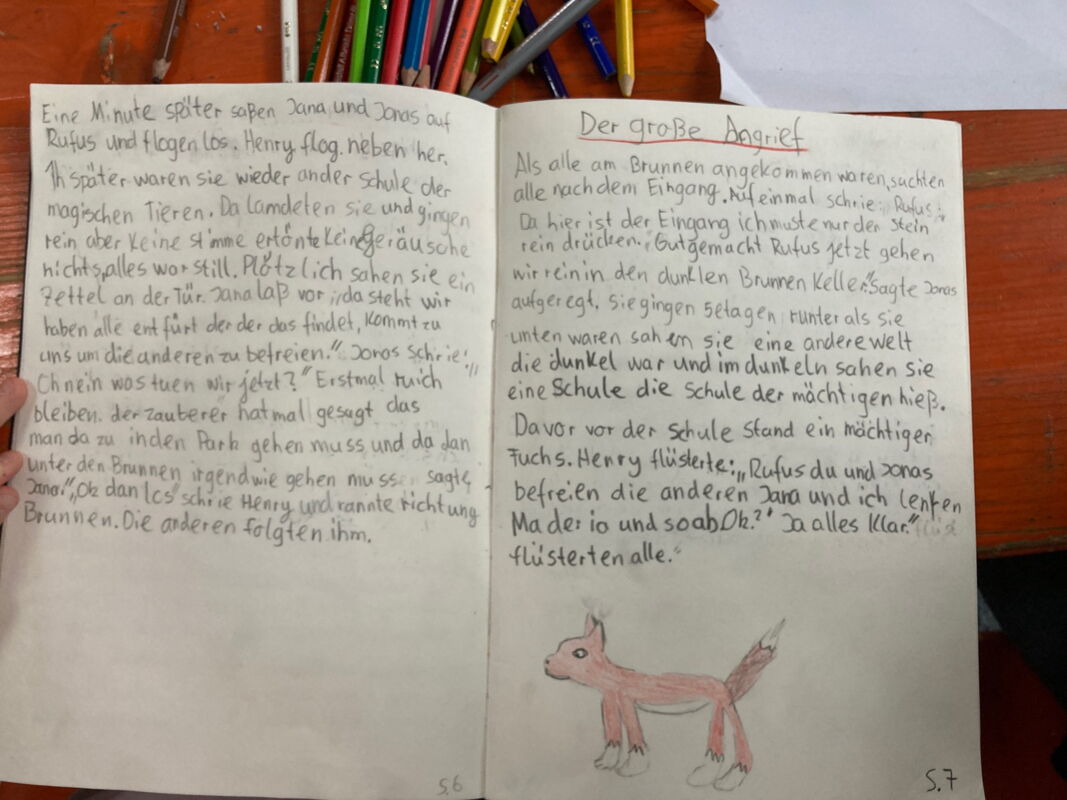 Eine Minute später saßen Jana und Jonas auf
Rufus und flogen los. Henry flog neben her.
1h später waren sie wieder ander schule der
magischen Tieren. Da lamdeten sie und gingen
rein aber keine stimme ertönte keine Geräusche
nichts, alles war still. Plötzlich sahen sie ein
Zettel an der Tür. Jana laß vor „da steht wir
haben alle entfürt der der das findet, kommt zu
uns um die anderen zu befreien." Jonas schrie: „
Oh nein was tuen wir jetzt?" Erstmal ruich
bleiben. der zauberer hat mal gesagt das
man da zu inden Park gehen muss und da dan
unter den Brunnen irgendwie gehen muss sagte
Jana." „Ok dan los" schrie Henry und rannte richtung
Brunnen. Die anderen folgten ihm.
S.6
Der große Angrief
Als alle am Brunnen angekommen waren, suchten
alle nach dem Eingang. Auf einmal schrie Rufus:
Da hier ist der Eingang ich muste nur der Stein
rein drücken. „Gut gemacht Rufus jetzt gehen
wir rein in den dunklen Brunnen Keller." Sagte Jonas
aufgeregt. Sie gingen 5 etagen runter als sie
unten waren sahen sie eine andere welt
die dunkel war und im dunkeln sahen sie
eine Schule die Schule der mächtigen hieß.
Davor vor der schule stand ein mächtiger
Fuchs. Henry flüsterte: „Rufus du und Jonas
befreien die anderen Jana und ich lenken
Maderio und so ab. Ok?" Ja alles klar."
flüsterten alle."
S.7